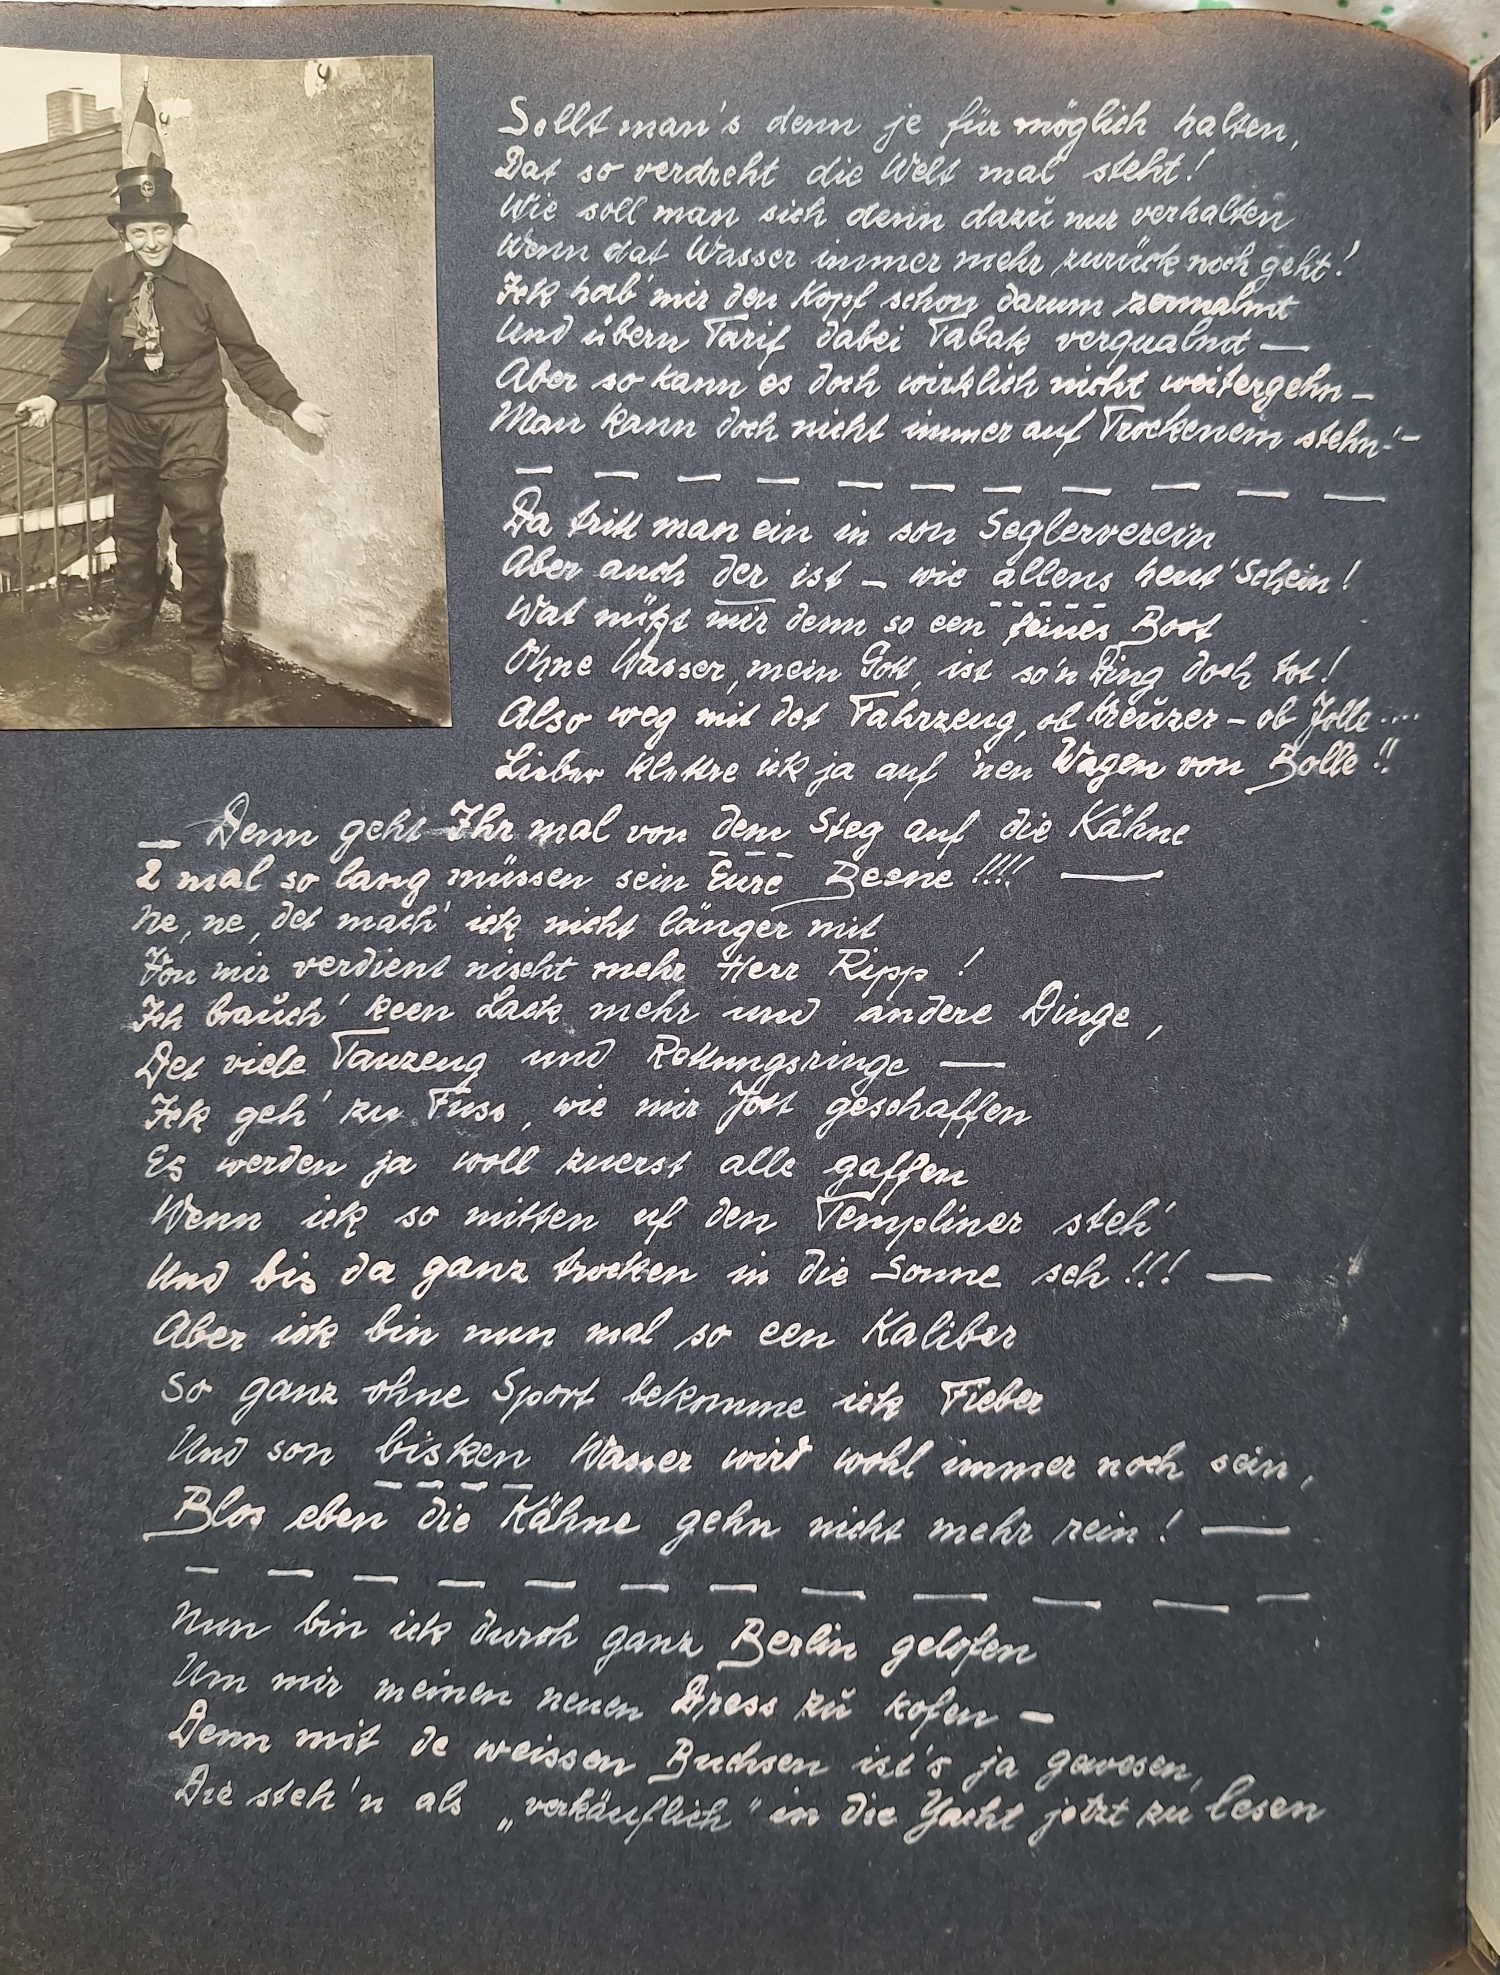 Sollt man's denn je für möglich halten,
Dat so verdreht die Welt mal steht!
Wie soll man sich denn dazu nur verhalten
Wenn dat Wasser immer mehr zurück noch geht!
Ick hab' mir den Kopf schon darum zermalmt
Und übern Tarif dabei Tabak verqualmt —
Aber so kann es doch wirklich nicht weitergehn –
Man kann doch nicht immer auf Trockenem stehn! –
— — — — — — — — — — —
Da tritt man ein in son Seglerverein
Aber auch der ist – wie allens heut' Schein!
Wat nützt mir denn so een feines Boot
Ohne Wasser, mein Gott, ist so'n Ding doch tot!
Also weg mit det Fahrzeug, ob Kreuzer – ob Jolle....
Lieber klettre ick ja auf 'nen Wagen von Bolle!!
— Denn geht Ihr mal von dem Steg auf die Kähne
2 mal so lang müssen sein Eure Beene!!!! —
Ne, ne, det mach' ick nicht länger mit
Von mir verdient nischt mehr Herr Ripp!
Ich brauch' keen Lack mehr und andere Dinge,
Det viele Tauzeug und Rettungsringe —
Ick geh' zu Fuss, wie mir Jott geschaffen
Es werden ja woll zuerst alle gaffen
Wenn ick so mitten uf den Templiner steh'
Und bis da ganz trocken in die Sonne seh!!! —
Aber ick bin nun mal so een Kaliber
So ganz ohne Sport bekomme ick Fieber
Und son bisken Wasser wird wohl immer noch sein,
Blos eben die Kähne gehn nicht mehr rein! —
— — — — — — — — — — — —
Nun bin ick durch ganz Berlin gelofen
Um mir meinen neuen Dress zu kofen –
Denn mit de weissen Buchsen ist's ja gewesen,
Die steh'n als „verkäuflich" in die Yacht jetzt zu lesen